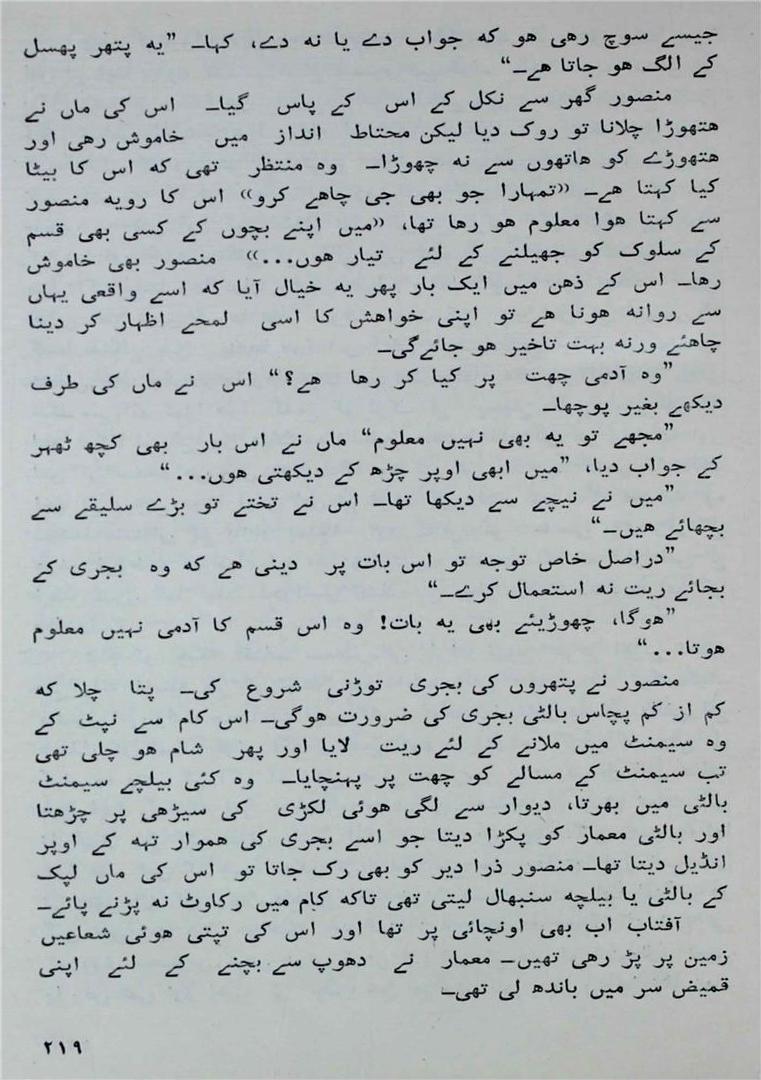 جیسے سوچ رهی هو که جواب دے یا نه دے، کہا۔ ”یه پتھر پھسل
کے الگ هو جاتا هے۔“
منصور گھر سے نکل کے اس کے پاس گیا۔ اس کی ماں نے
هتھوڑا چلانا تو روک دیا لیکن محتاط انداز میں خاموش رهی اور
هتھوڑے کو هاتھوں سے نه چھوڑا۔ وه منتظر تھی که اس کا بیٹا
کیا کہتا هے۔ «تمہارا جو بھی جی چاهے کرو» اس کا رویه منصور
سے کہتا هوا معلوم هو رها تھا، «میں اپنے بچوں کے کسی بھی قسم
کے سلوک کو جھیلنے کے لئے تیار هوں...» منصور بھی خاموش
رها۔ اس کے ذهن میں ایک بار پھر یه خیال آیا که اسے واقعی یہاں
سے روانه هونا هے تو اپنی خواهش کا اسی لمحے اظہار کر دینا
چاهئے ورنه بہت تاخیر هو جائےگی۔
”وه آدمی چھت پر کیا کر رها هے؟“ اس نے ماں کی طرف
دیکھے بغیر پوچھا۔
”مجھے تو یه بھی نہیں معلوم“ ماں نے اس بار بھی کچھ ٹھہر
کے جواب دیا، ”میں ابھی اوپر چڑھ کے دیکھتی هوں...“
”میں نے نیچے سے دیکھا تھا۔ اس نے تختے تو بڑے سلیقے سے
بچھائے هیں۔“
”دراصل خاص توجه تو اس بات پر دینی هے که وه بجری کے
بجائے ریت نه استعمال کرے۔“
”هوگا، چھوڑیئے بھی یه بات! وه اس قسم کا آدمی نہیں معلوم
هوتا...“
منصور نے پتھروں کی بجری توڑنی شروع کی۔ پتا چلا که
کم از کم پچاس بالٹی بجری کی ضرورت هوگی۔ اس کام سے نپٹ کے
وه سیمنٹ میں ملانے کے لئے ریت لایا اور پھر شام هو چلی تھی
تب سیمنٹ کے مسالے کو چھت پر پہنچایا۔ وه کئی بیلچے سیمنٹ
بالٹی میں بھرتا، دیوار سے لگی هوئی لکڑی کی سیڑھی پر چڑھتا
اور بالٹی معمار کو پکڑا دیتا جو اسے بجری کی هموار تہه کے اوپر
انڈیل دیتا تھا۔ منصور ذرا دیر کو بھی رک جاتا تو اس کی ماں لپک
کے بالٹی یا بیلچه سنبھال لیتی تھی تاکه کام میں رکاوٹ نه پڑنے پائے۔
آفتاب اب بھی اونچائی پر تھا اور اس کی تپتی هوئی شعاعیں
زمین پر پڑ رهی تھیں۔ معمار نے دھوپ سے بچنے کے لئے اپنی
قمیض سر میں باندھ لی تھی۔
۲۱۹